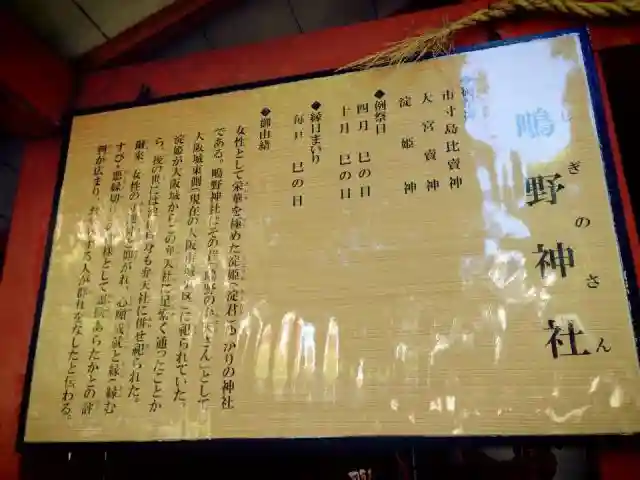 鴫野神社
ぎのさん
市寸島比賣神
大宮賣神
淀姫神
●例祭日
四月 巳の日
十月 巳の日
●縁日まいり
毎月 巳の日
●御由緒
女性として栄華を極めた淀姫(淀君)ゆかりの神社
である。鴫野神社はその昔「鴫野の弁天さん」として
大阪城東側(現在の大阪市城東区)に祀られていた。
淀姫が大阪城からこの弁天社に足繁く通ったことか
ら、後の世には淀姫自身も弁天社に併せ祀られた。
爾来、女性の守護神と仰がれ、心願成就と縁(縁む
すび・悪縁切り)の神様として霊験あらたかとの評
判が広まり、する人が群れをなしたと伝わる。